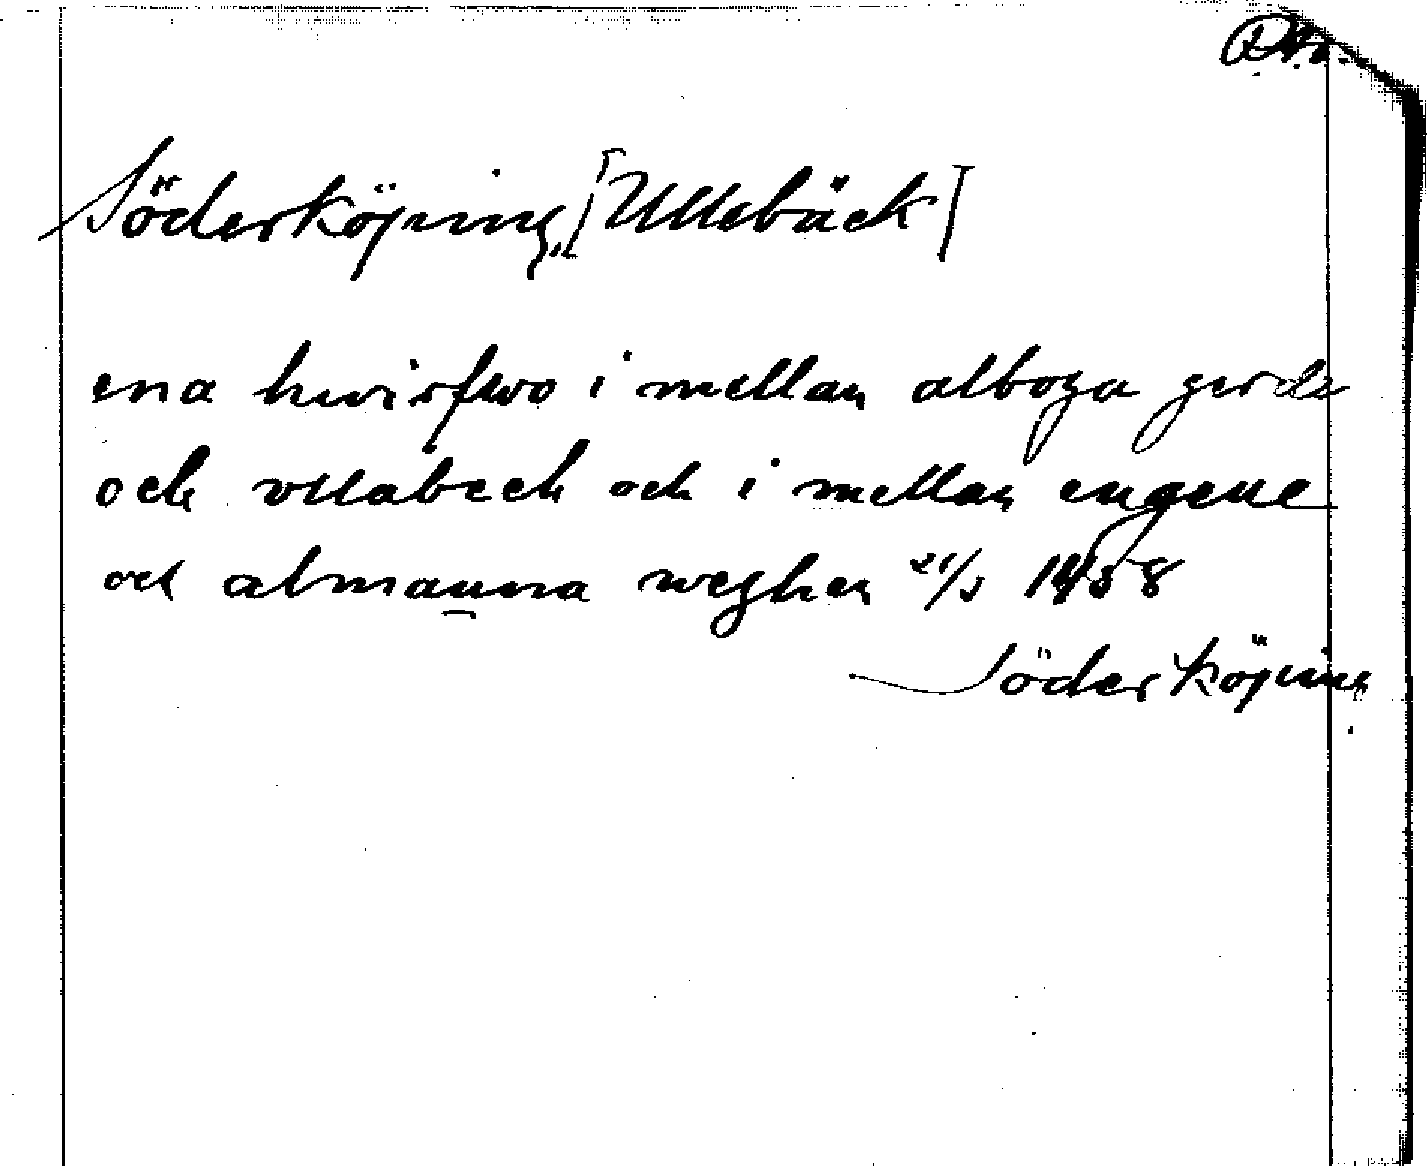 Söderköping, [Ullebäck]
ena hwirfwo i mellan alboga gerde
och vllabeck och i mellan engene
och almanna weghen 21/5 1458
Söderköping